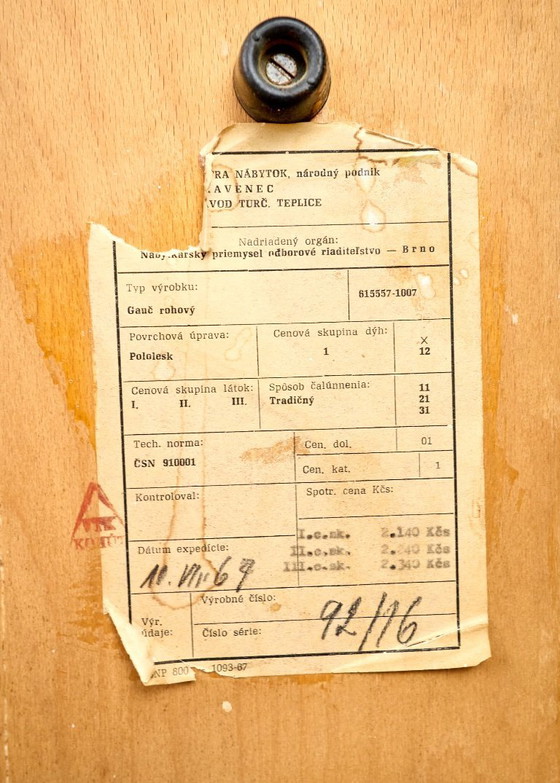 RA NÁBYTOK, národný podnik
AVENEC
VOD TURČ. TEPLICE
Nadriadený orgán:
Nábytkársky priemysel odborové riaditeľstvo — Brno
Typ výrobku:
615557-1007
Gauč rohový
Povrchová úprava:
Cenová skupina dýh:
X
Pololesk
1
12
Cenová skupina látok:
Spôsob čalúnnenia:
11
I. II. III.
Tradičný
21
31
Tech. norma:
Cen. dol.
01
ČSN 910001
Cen. kat.
1
Kontroloval:
Spotr. cena Kčs:
I.c.sk. 2.140 Kčs
Dátum expedície:
II.c.sk. 2.240 Kčs
III.c.sk. 2.340 Kčs
10. VII. 67
Výrobné číslo:
92/16
Výr.
údaje:
Číslo série:
NP 800 1093-67